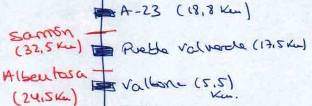 A-23 (18,8 Km)
Sarrión
(32,5 Km)
Puebla Valverde (17,5 Km)
Albentosa
(24,5 Km)
Valbona (5,5)
Km.